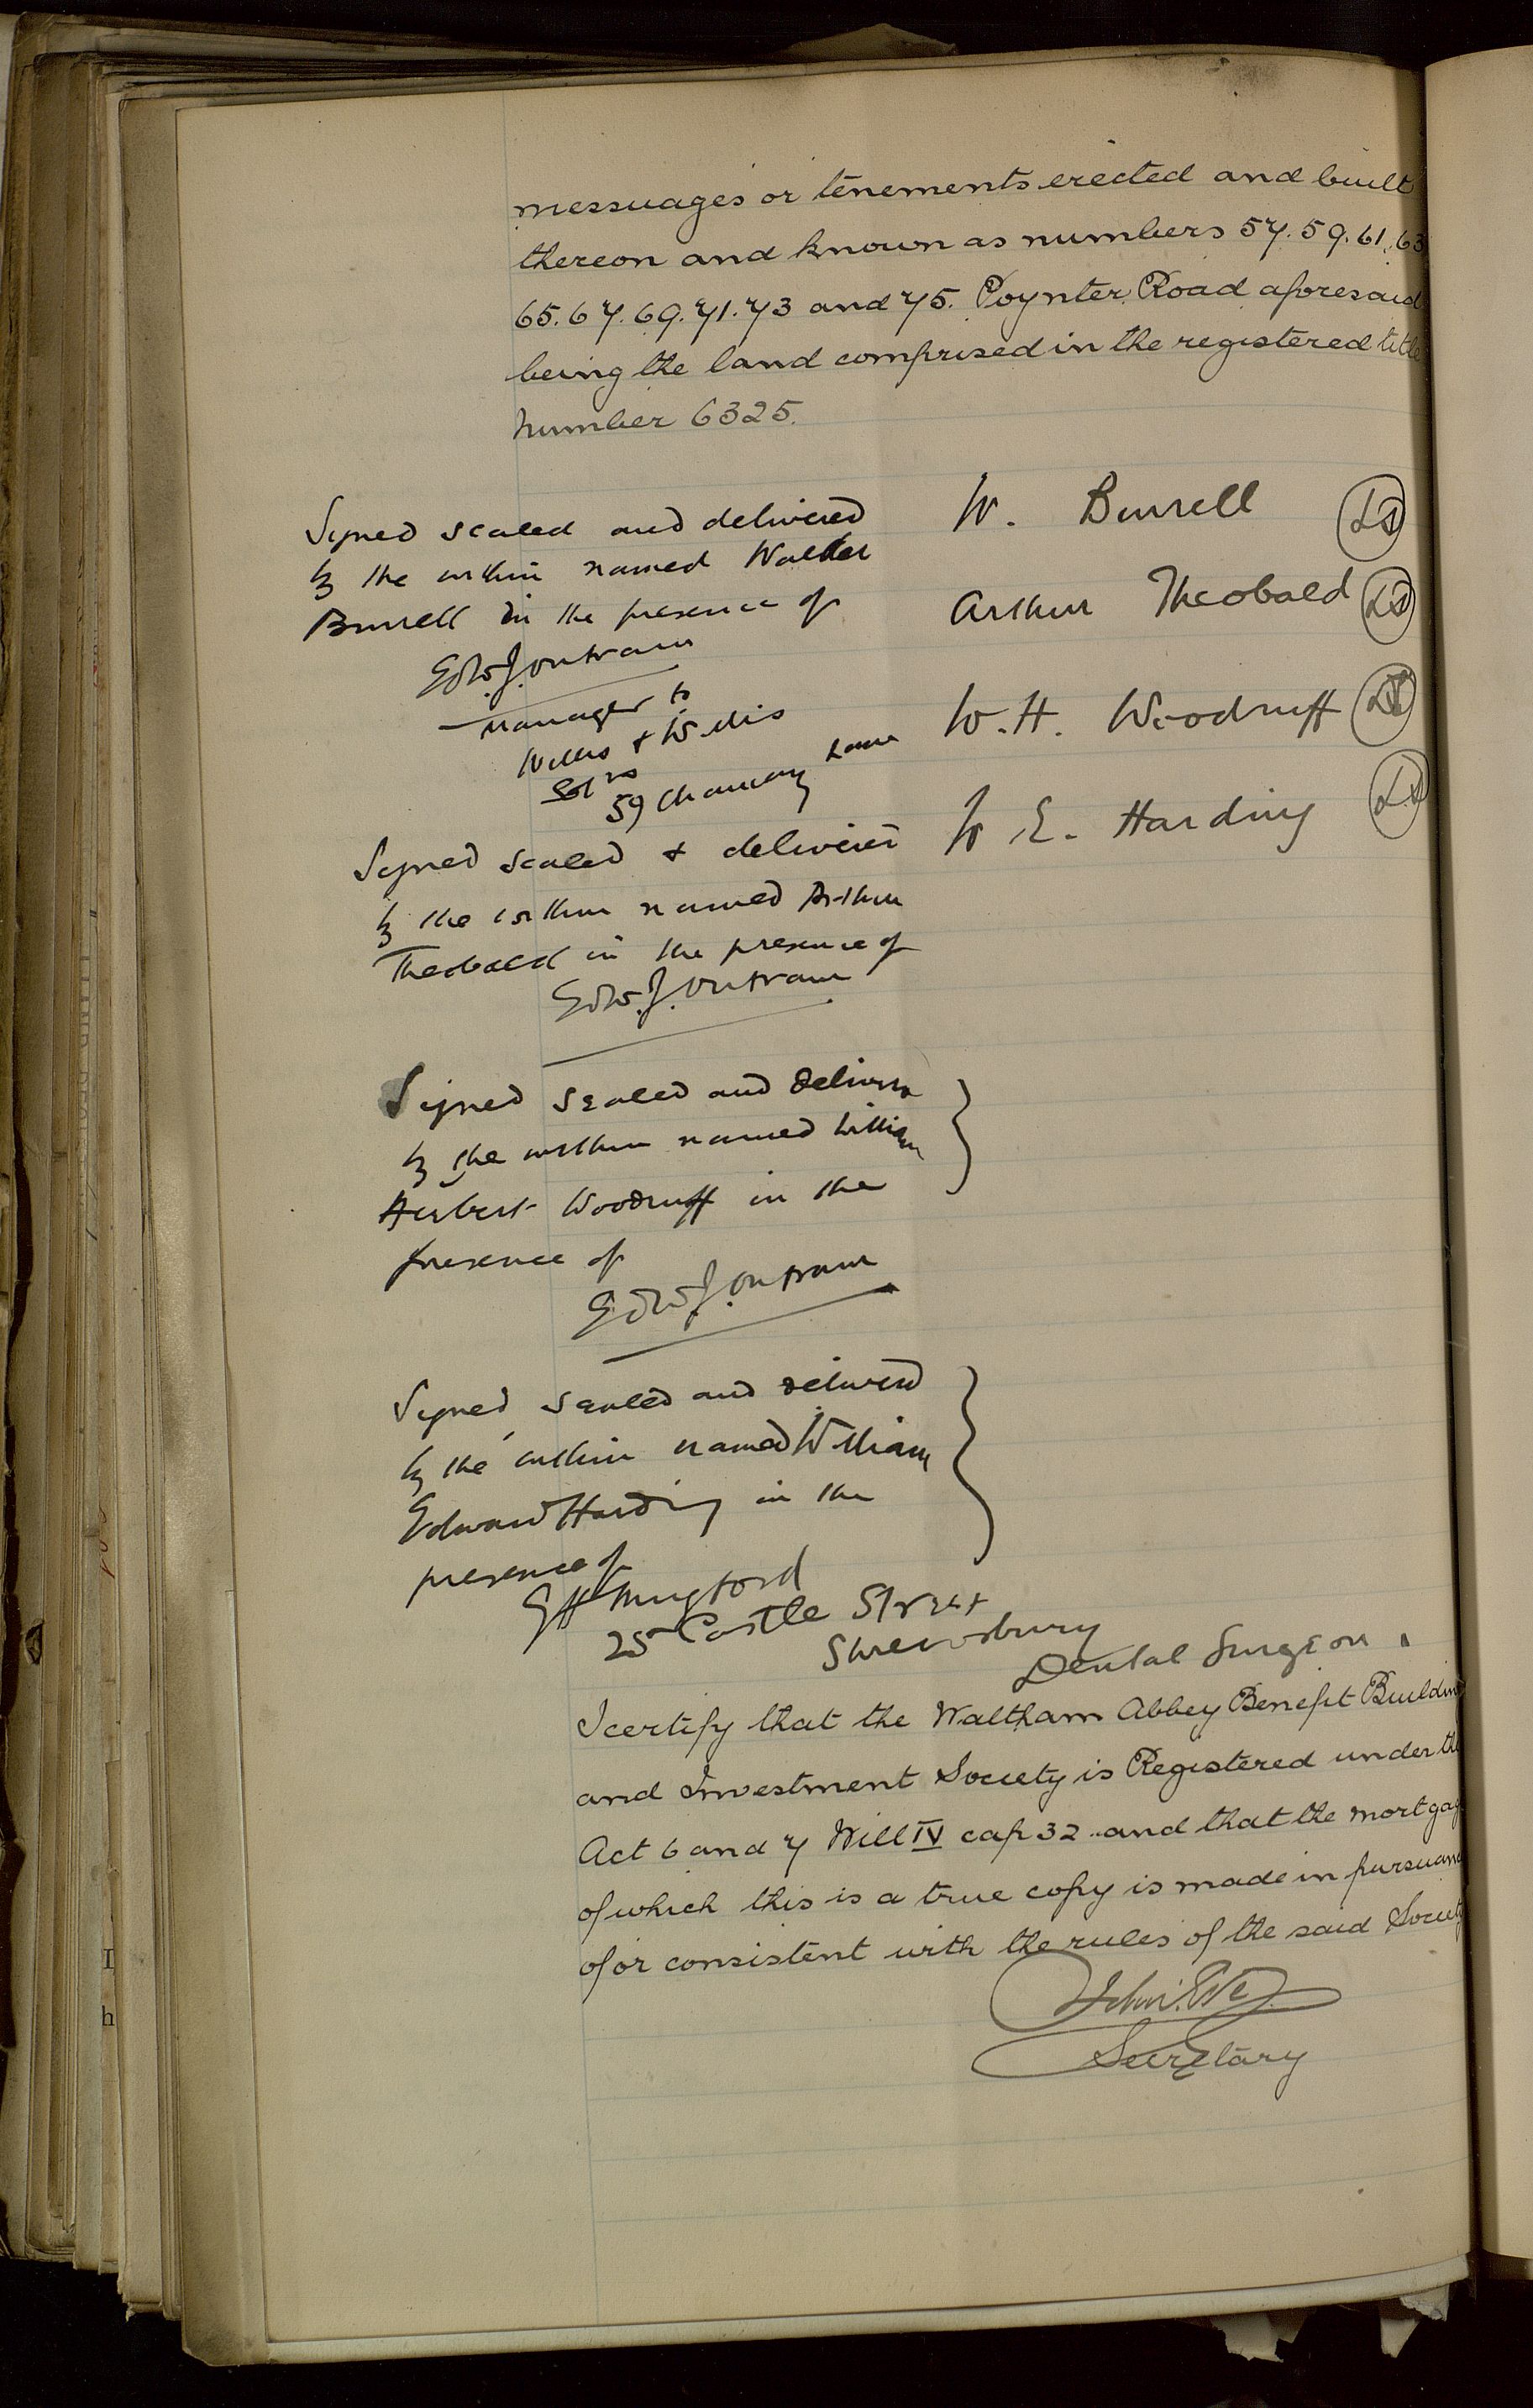 messuages or tenements erected and built
thereon and known as numbers 57. 59. 61. 63
65. 67. 69. 71. 73 and 75. Poynter Road aforesaid
being the land comprised in the registered title
number 6325.
Signed sealed and delivered
by the within named Walter
Burrell in the presence of
Edw. J. Outram
manager to
Willis & Willis
Solrs
59 Chancery Lane
W. Burrell LS
Arthur Theobald LS
W. H. Woodruff LS
W E. Harding LS
Signed sealed & delivered
by the within named Arthur
Theobald in the presence of
Edw. J. Outram
Signed sealed and delivered
by the within named William
Herbert Woodruff in the
presence of
Edw J. Outram
Signed sealed and delivered
by the within named William
Edward Harding in the
presence of
G H Mugford
25 Castle Street
Shrewsbury
Dental Surgeon.
I certify that the Waltham Abbey Benefit Buildin
and Investment Society is Registered under the
Act 6 and 7 Will IV cap 32 and that the mortgag
of which this is a true copy is made in pursuanc
of or consistent with the rules of the said Society
John
Secretary
I
h